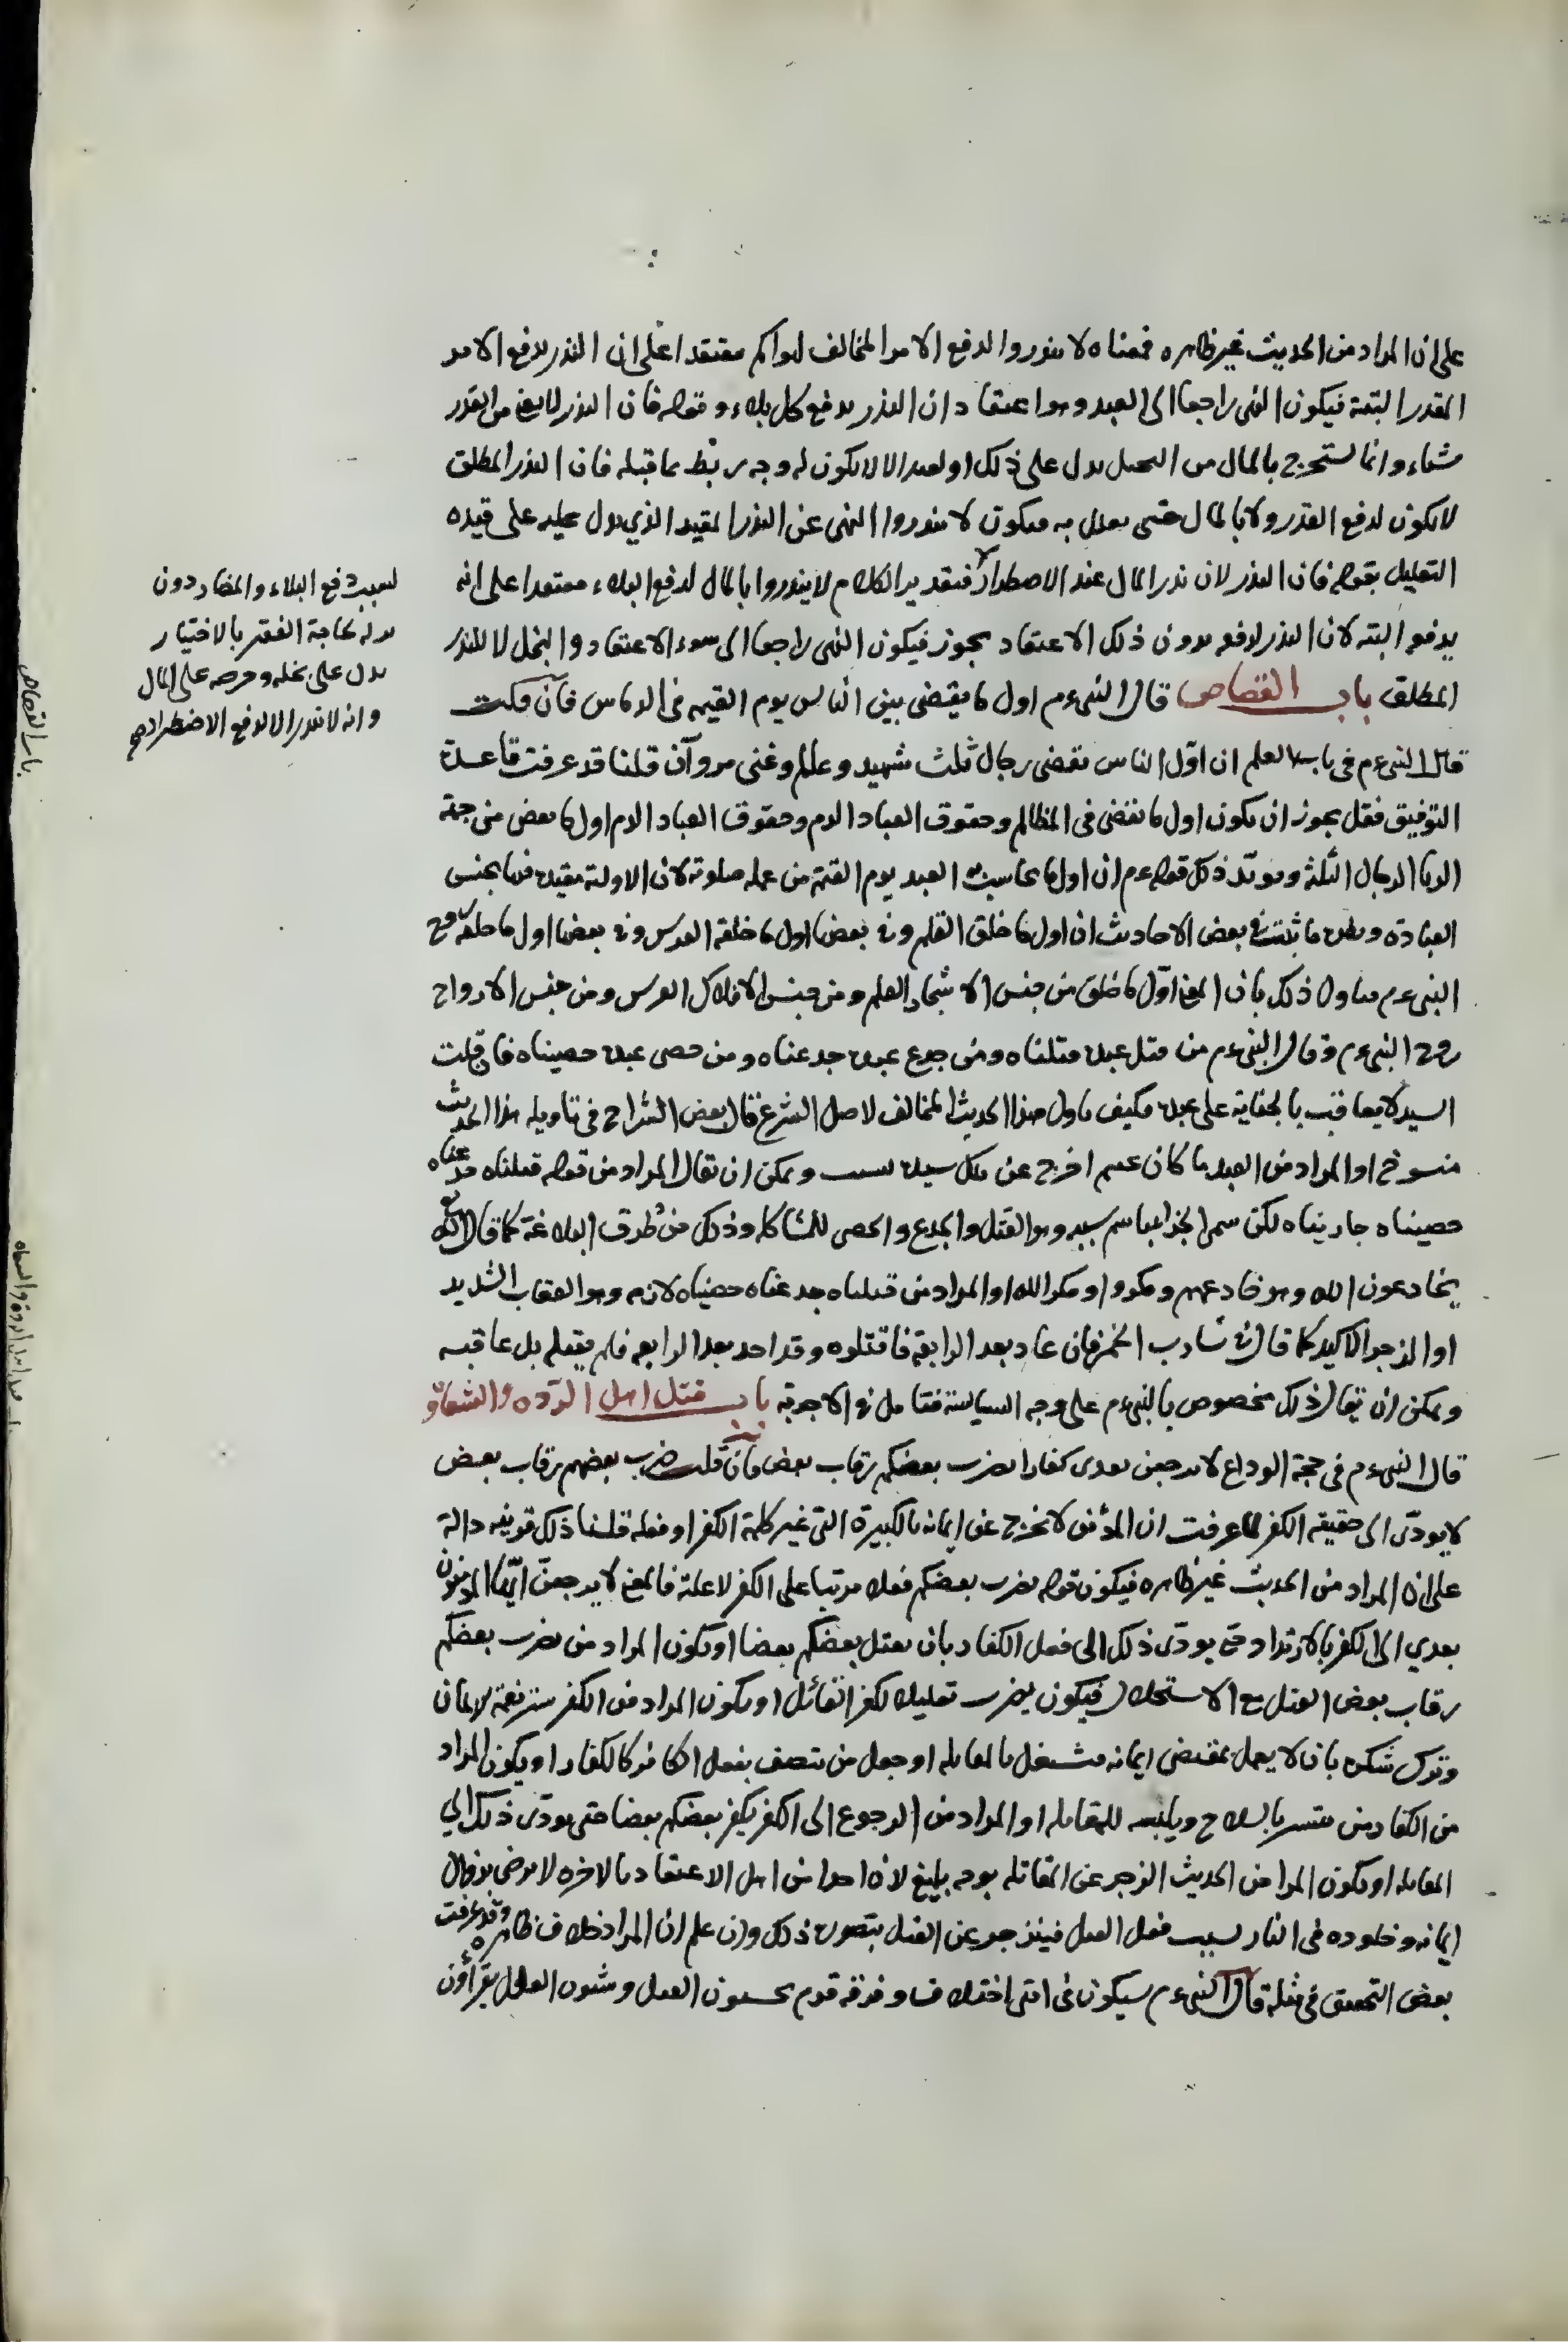 على ان المراد من الحديث غير ظاهره فمعناه لا تنذروا لدفع الامر المخالف لهواكم معتقدا على ان النذر يدفع الامر
المقدر البتة فيكون النهى راجعا الى العبد وهو اعتقاد ان النذر يدفع كل بلاء وقوله فان النذر لا يغنى من القدر
شياء وانما يستخرج بالمال من البخيل يدل على ذلك او لعدا لا لا يكون له وجه ربط بما قبله فان النذر المطلق
لا يكون لدفع القدر ولا بالمال حتى يعلل به فيكون لا تنذروا النهى عن النذر المقيد الذي يدل عليه على قيده
التعليل بقوله فان النذر لان نذر المال عند الاضطرار فتقدير الكلام لا ينذروا بالمال لدفع البلاء معتقدا على انه
يدفع البته لان النذر لدفعه بدون ذلك الاعتقاد يجوز فيكون النهى راجعا الى سوء الاعتقاد والبخل لا للنذر
المطلق باب القصاص قال النبى عم اول ما يقضى بين الناس يوم القيمه فى الدماس فان قلت
قال النبى عم فى باب العلم ان اول الناس يقضى رجال ثلث شهيد وعالم وغنى مروآن قلنا قد عرفت قاعدة
التوفيق فقل يجوز ان يكون اول ما يقضى فى المظالم وحقوق العباد الدم وحقوق العباد الدم اول ما يعض من جهة
الريا الرجال الثلثة ويؤيد ذلك قوله عم ان اول ما يحاسب به العبد يوم القيمة من عمله صلوته لان الاولية مقيدة فيها بجنس
العبادة ونظيره ما ثبت فى بعض الاحاديث ان اول ما خلق القلم وفى بعضها اول ما خلقه العرس وفى بعضها اول ما خلقه روح
النبى عم فياول ذلك بان المعنى اول ما خلق من جنس الاشجار القلم ومن جنس الافلاك العرس ومن جنس الارواح
روح النبى عم وقال النبى عم من قتل عبده قتلناه ومن جدع عبده جدعناه ومن خصى عبده خصيناه فان قلت
السيد لا يعاقب بالجناية على عبده فكيف ياول هذا الحديث المخالف لاصل الشرع قال بعض الشراح فى تاويله هذا الحديث
منسوخ او المراد من العبد ما كان عبده اخرج عن ملك سيده بسبب ويمكن ان يقال المراد من قوله قتلناه جدعناه
خصيناه جازيناه لكن سمى الجزاء باسم سببه وهو القتل والجدع والخصى للمشاكله وذلك من طرق البلاغة كما قال الله تع
يخادعون الله وهو خادعهم ومكروا ومكر الله او المراد من قتلناه جدعناه خصيناه لازمه وهو العقاب الشديد
او الزجر الاكيد كما قال فى شارب الخمر فان عاد بعد الرابعة فاقتلوه وقد احد بعد الرابعه فلم يقتله بل عاقبه
ويمكن ان يقال ذلك مخصوص بالنبى عم على وجه السياسة فتامل فى الاجوبة باب قتل اهل الردة والسعاة
قال النبى عم فى حجة الوداع لا ترجعن بعدى كفارا يضرب بعضكم رقاب بعض فان قلت ضرب بعضهم رقاب بعض
لا يودى الى حقيقة الكفر لما عرفت ان المؤمن لا يخرج عن ايمانه بالكبيرة التى غير كلمة الكفر او فعله قلنا ذلك قرينه دالة
على ان المراد من الحديث غير ظاهره فيكون قوله يضرب بعضكم فعلا مرتبا على الكفر لا علة فالمعنى لا ترجعن ايها المؤمنون
بعدي الى الكفر بالارتداد حتى يودى ذلك الى فعل الكفار بان يقتل بعضكم بعضا او يكون المراد من يضرب بعضكم
رقاب بعض القتل مع الاستحلال فيكون يضرب تعليلا لكفر القائل او يكون المراد من الكفر ستر نعمة الايمان
وترك شكره بان لا يعمل بمقتضى ايمانه فتشتغل بالمقاتله او جعل من يتصف بفعل الكافر كالكفار او يكون المراد
من الكفار من يتستر بالسلاح ويلبسه للمقاتله او المراد من الرجوع الى الكفر يكفر بعضكم بعضا حتى يودى ذلك الي
المقاتله او يكون المراد من الحديث الزجر عن المقاتله بوجه بليغ لان احدا من اهل الاعتقاد بالاخره لا يرضى بزوال
ايمانه وخلوده فى النار بسبب فعل القتل فينزجر عن القتل بتصور ذلك وان علم ان المراد خلاف ظاهره وقد عرفت
بعض التحقيق فى مثله قال النبى عم سيكون فى امتى اختلاف وفرقة قوم يحسنون القول ويسيئون الفعل يقرأون
لسبب دفع البلاء والمضار دون
بدله لحاجة الفقير بالاختيار
يدل على بخله وحرصه على المال
وانه لا ينذر الا لدفع الاضطرار صح
باب القصاص